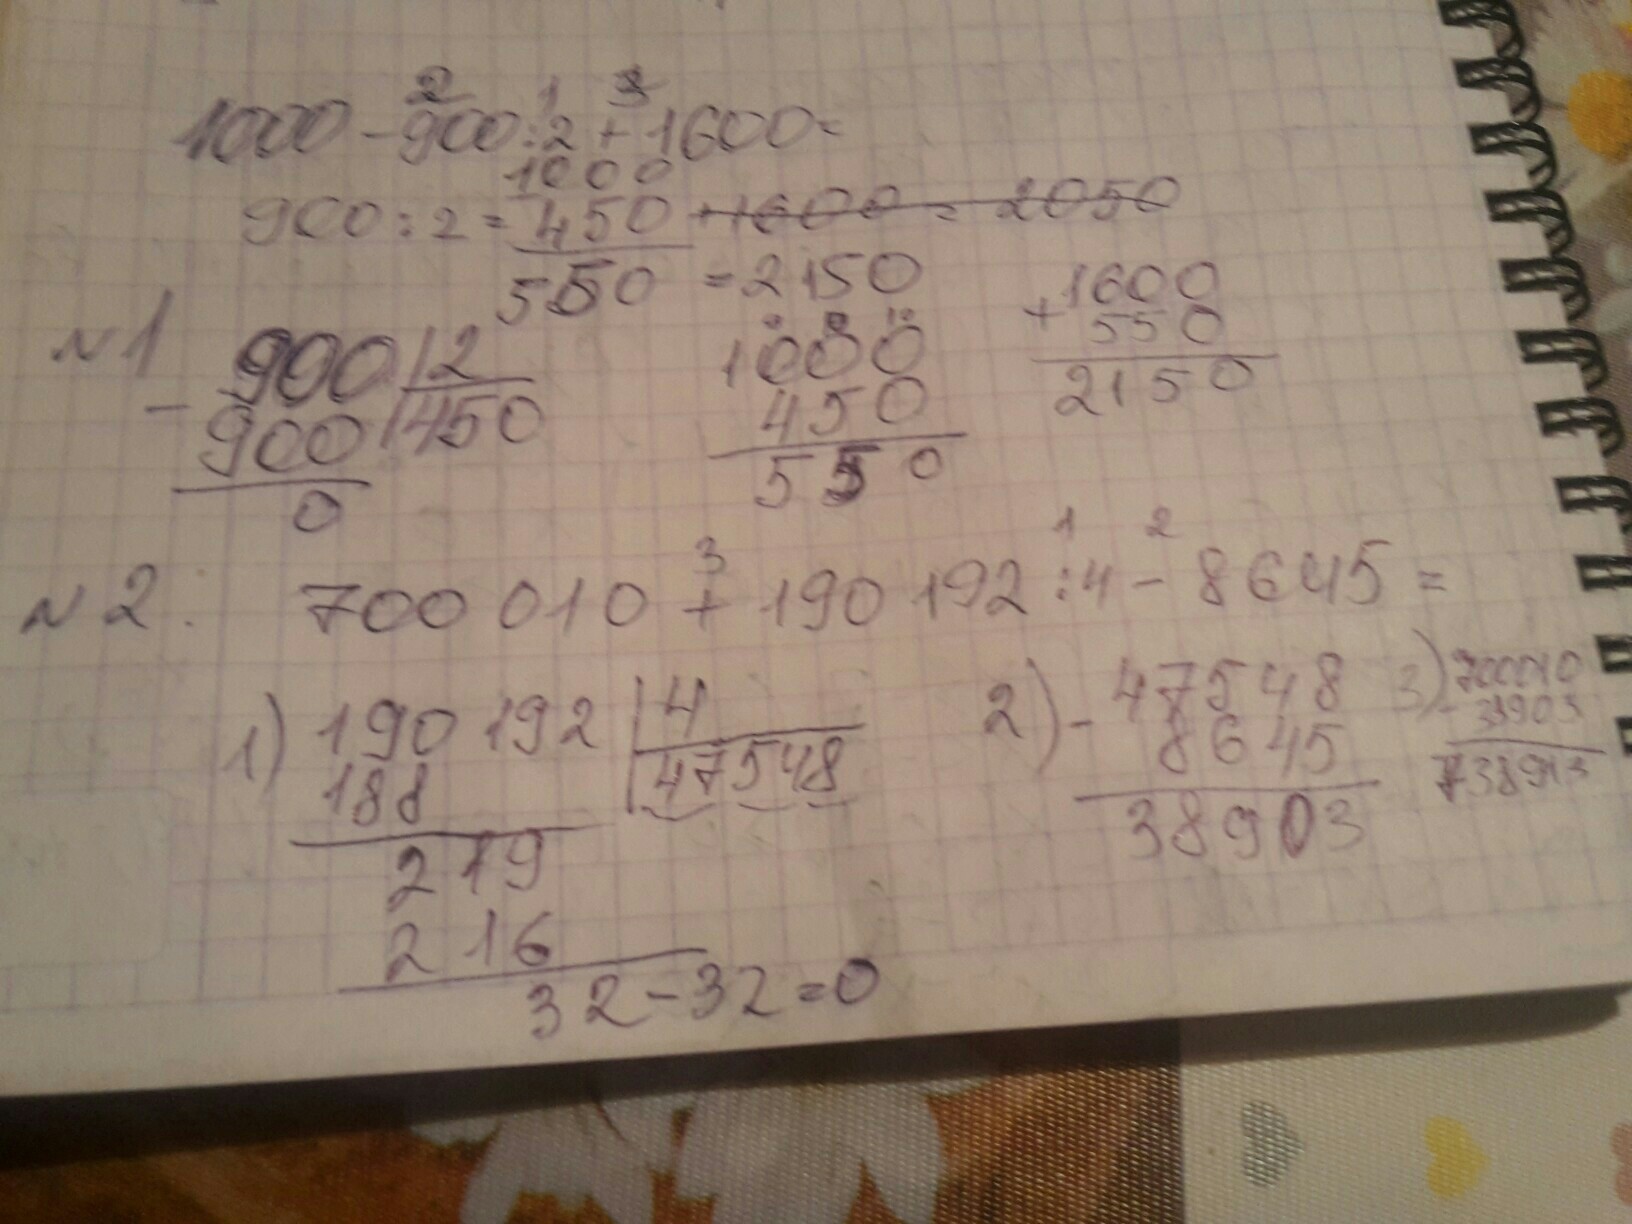 2 1 3
1000 - 900 : 2 + 1600 =
1000
900 : 2 = 450 + 1600 = 2050
550 = 2150
1600
+ 550
2150
N1
900 | 2
- 900 | 450
0
1000
450
550
3 1 2
N2: 700 010 + 190 192 : 4 - 8645 =
1) 190 192 | 4
188 | 47548
219
216
32 - 32 = 0
2) - 47548
8645
38903
3) 700010
38903
738913